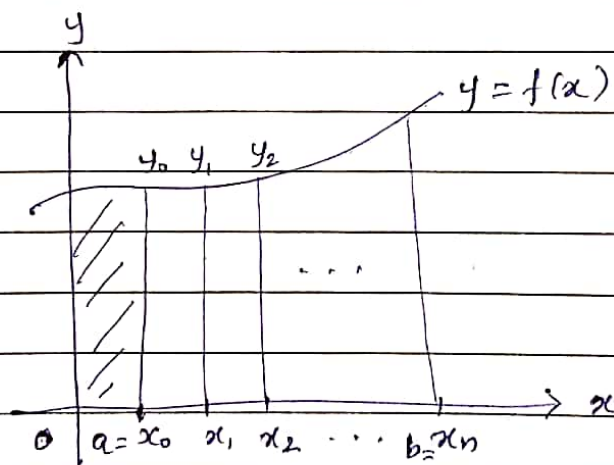 y
y = f(x)
y₀ y₁ y₂
. . .
x
0 a = x₀ x₁ x₂ . . . b = xₙ